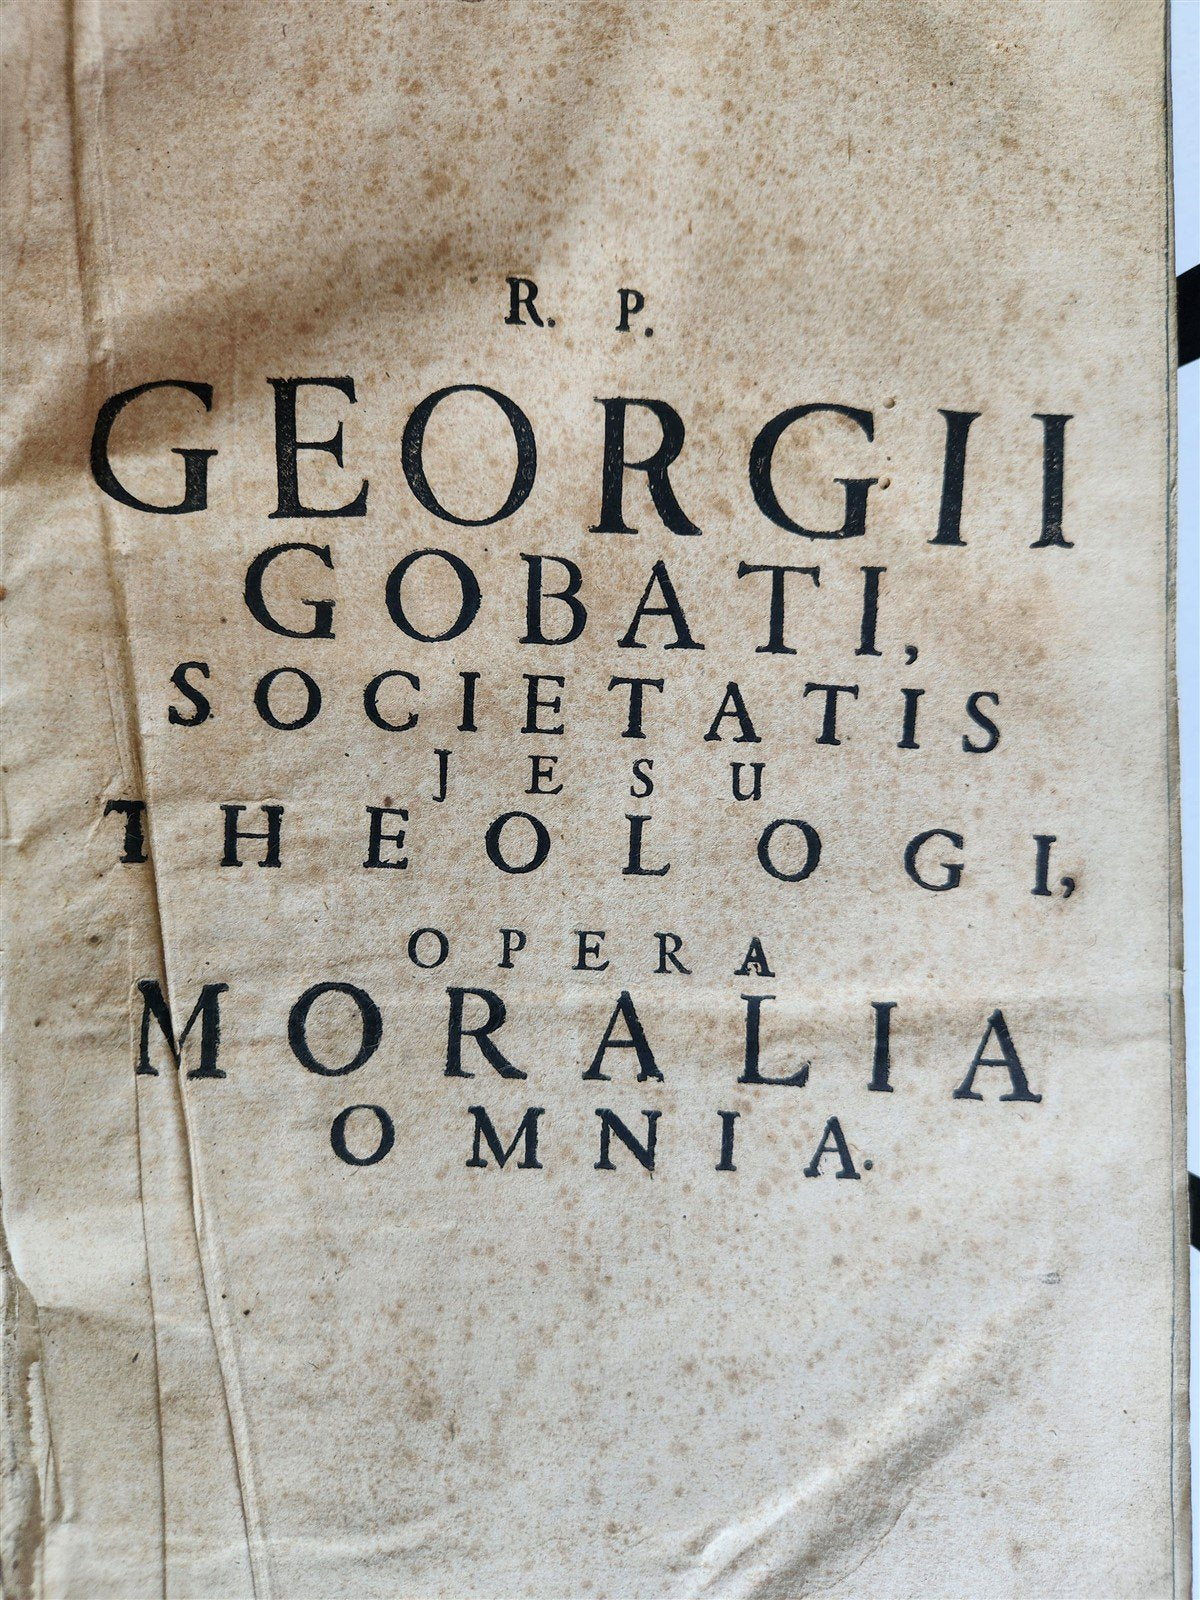 R. P.
GEORGII
GOBATI,
SOCIETATIS
JESU
THEOLOGI,
OPERA
MORALIA
OMNIA.